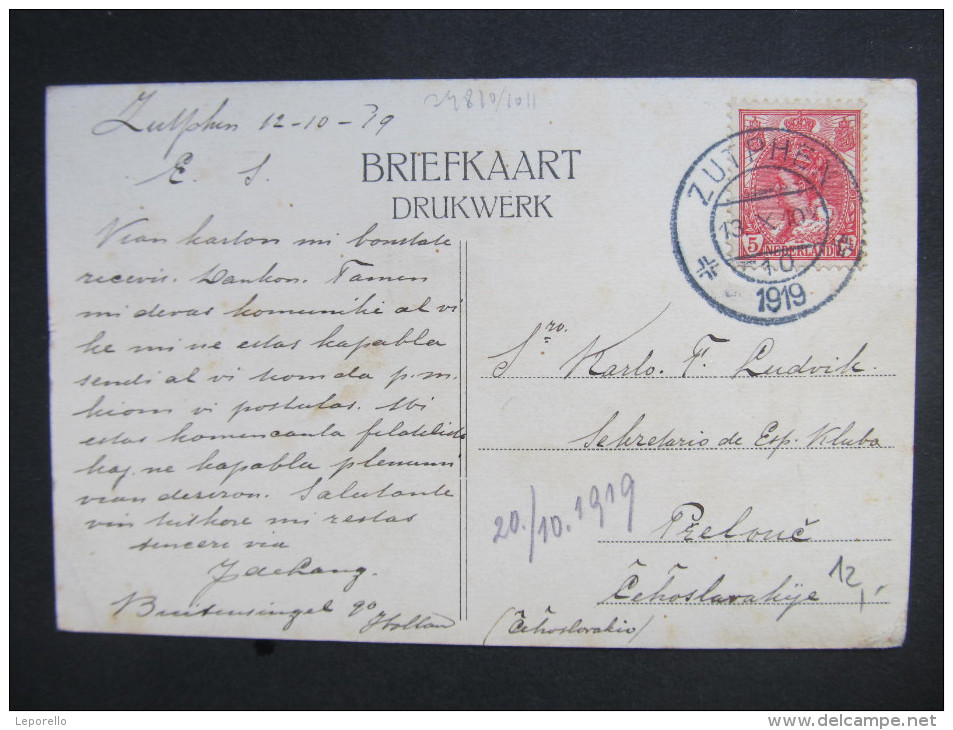 24810/1011
Zutphen 12-10-19
E. S.
BRIEFKAART
DRUKWERK
Vian karton mi bonstate
recevis. Dankon. Tamen
mi devas komuniki al vi
ke mi ne estas kapabla
sendi al vi kom da p.m.
kiom vi postulas. Mi
estas komencanta filatelisto
kaj ne kapabla plenumi
vian deziron. Salutante
vin tutkore mi restas
sincere via
J de Lang.
Buitensingel 90
Holland
ZUTPHEN
13 X 10
1919
5 NEDERLAND
Sro. Karlo. F. Ludvik.
Sekretario de Esp. Klubo
20./10.1919
Prelouč
Čehoslavakije
(Čehoslovakio)
12,
Leporello
www.delcampe.net